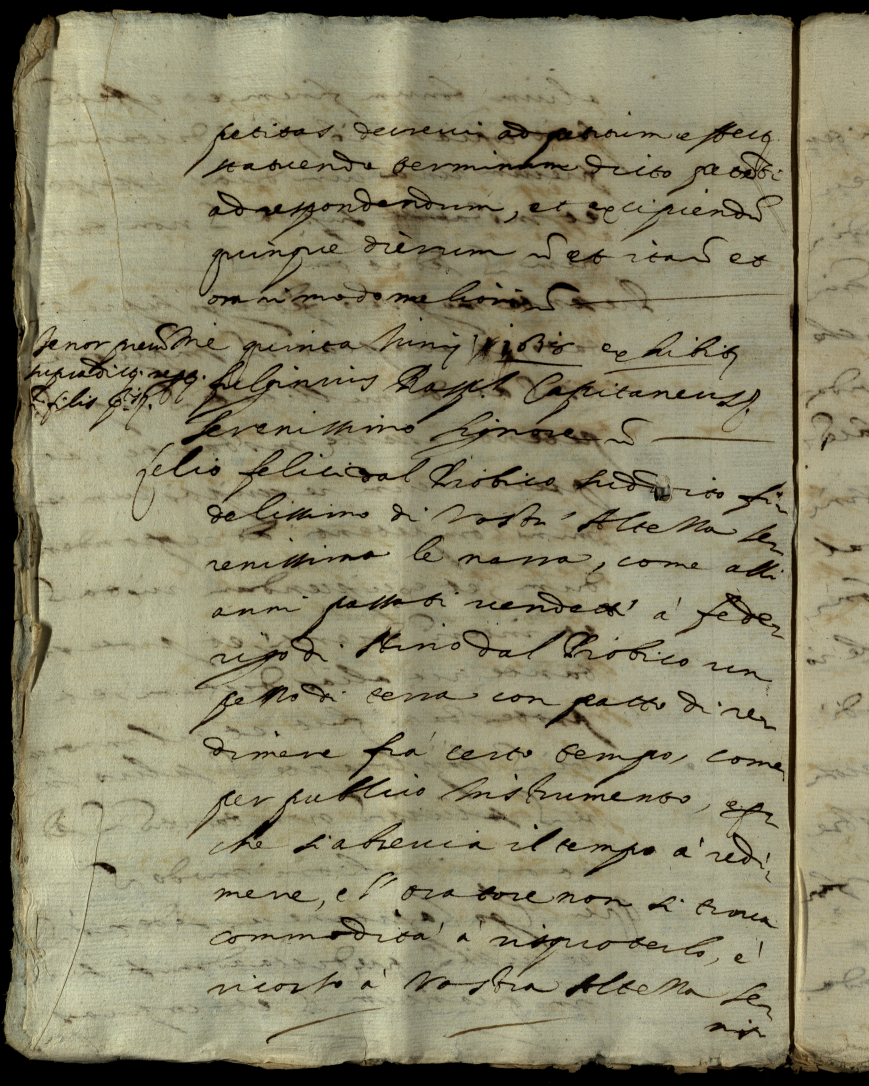 petitas decrevi ad partium effect.
statuendo terminum dicto
ad respondendum, et excipiendũ
quinque dierum ũ et itaũ et
omni modo meliori ũ
Tenor
supradict.
Die quinta Junij exhibit
felginius Capitaneus
Serenissimo Signore ũ
felio felici dal Piobico suddito fi
delissimo di Vostra Altezza Se
renissima le narra, come alli
anni passati vendett' a' fede
rigo di dal Piobico un
pezzo di terra con patto di re
dimere frà certo tempo, come
per publico Instrumento,
che s'abrevia il tempo a' redi
mere, e l'oratore non si trova
commodità a' risquoterlo, e'
ricorso a' Vostra Altezza Se
nis